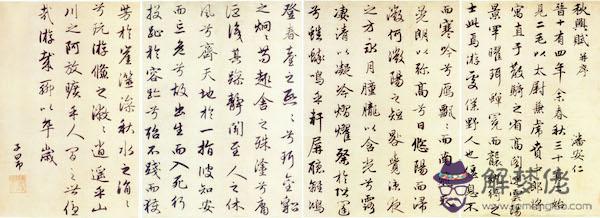 秋興賦并序
潘安仁
晉十有四年余春秋三十有二始
見二毛以太尉掾兼虎賁中郎將
寓直于散騎之省高閣連雲陽
景罕曜珥蟬冕而襲紈綺之
士此焉游處僕野人也偃息不
而寒吟兮鴈飄飄而南
熒朗以彌高兮日悠陽而浸
微何微陽之短晷覺涼夜
之方永月朣朧以含光兮露
凄清以凝冷熠燿粲於階闥
兮蟋蟀鳴乎軒屏聽離鴻
登春臺之熙熙兮珥金貂
之炯炯苟趣舍之殊塗兮庸
詎識其躁靜聞至人之休
風兮齊天地於一指彼知安
而忘危兮故出生而入死行
投趾於容跡兮殆不踐而獲
芳於崖澨澡秋水之涓涓
兮玩游鯈之潎潎逍遙乎山
川之阿放曠乎人間之世優
哉游哉聊以卒歲
子昂
解梦佬